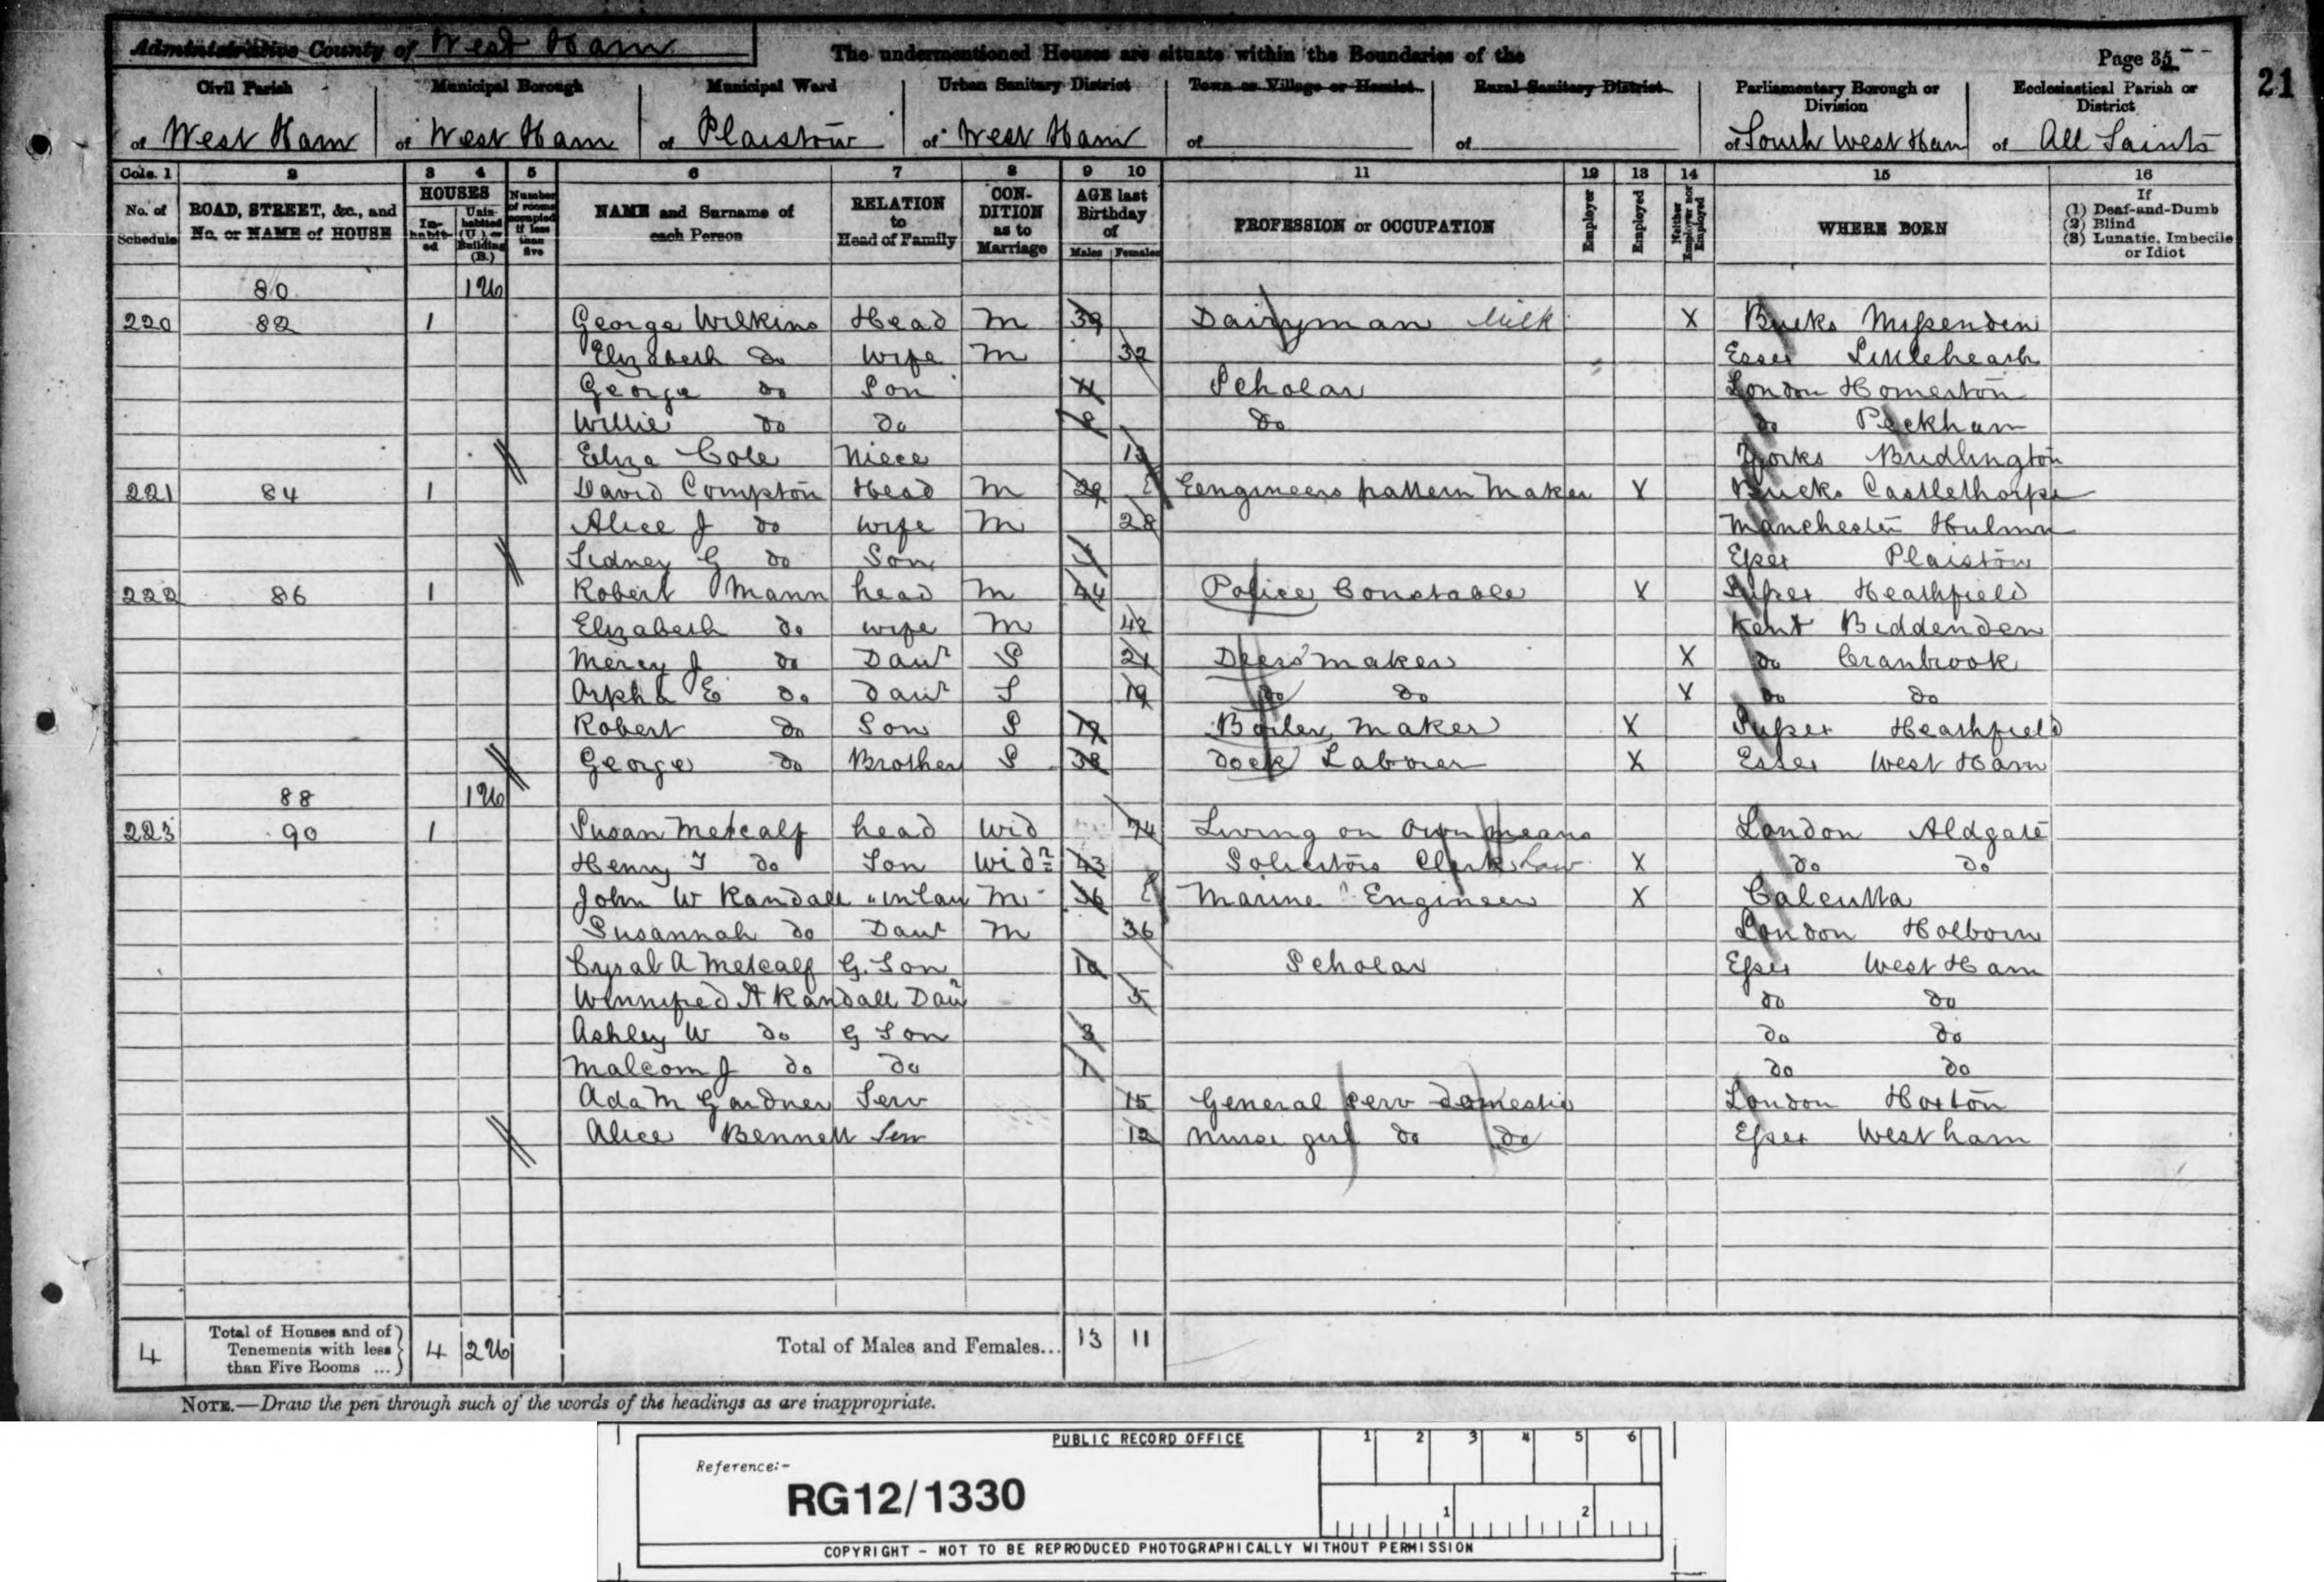 Administrative County of West Ham The undermentioned Houses are situate within the Boundaries of the Page 35
21
Civil Parish Municipal Borough Municipal Ward Urban Sanitary District Town or Village or Hamlet Rural Sanitary District Parliamentary Borough or Division Ecclesiastical Parish or District
of West Ham of West Ham of Plaistow of West Ham of of of South West Ham of All Saints
Cols. 1 2 3 4 5 6 7 8 9 10 11 12 13 14 15 16
No. of Schedule ROAD, STREET, &c., and No. or NAME of HOUSE HOUSES In-habit-ed Unin-habited (U.) or Building (B.) Number of rooms occupied if less than five NAME and Surname of each Person RELATION to Head of Family CON-DITION as to Marriage AGE last Birthday of Males Females PROFESSION or OCCUPATION Employer Employed Neither Employer nor Employed WHERE BORN If (1) Deaf-and-Dumb (2) Blind (3) Lunatic, Imbecile or Idiot
80 1 U
220 82 1 George Wilkins Head M 39 Dairyman Milk X Bucks Missenden
Elizabeth do Wife M 32 Essex
George do Son 11 Scholar London Homerton
Willie do do 8 do do Peckham
Eliza Cole Niece 13 Yorks Bridlington
221 84 1 David Compton Head M 29 Eengineers pattern Maker X Bucks Castlethorpe
Alice J do Wife M 28 Manchester Hulme
Sidney G do Son Essex Plaistow
222 86 1 Robert Mann head M 44 Police Constable X Sussex Heathfield
Elizabeth do wife M 42 Kent Biddenden
Mercy J do Daur S 21 Dress maker X do Cranbrook
Orpha E do daur S 19 do do X do do
Robert do Son S 17 Boiler Maker X Sussex Heathfield
George do Brother S 38 Dock Laborer X Essex West Ham
88 1 U
223 90 1 Susan Metcalf head Wid 74 Living on Own means London Aldgate
Henry T do Son Widr 43 Solicitors Clerk Law X do do
John W Randall " in law M 36 Marine Engineer X Calcutta
Susannah do Daur M 36 London Holborn
Cyral A Metcalf G. Son 10 Scholar Essex West Ham
Winnifred A Randall Daur 5 do do
Ashley W do G Son 3 do do
Malcom J do do 1 do do
Ada M Gardner Serv 15 General Serv Domestic London Hoxton
Alice Bennett Serv 12 Nurse girl do do Essex West ham
4 Total of Houses and of Tenements with less than Five Rooms ... 4 2 U Total of Males and Females... 13 11
NOTE.—Draw the pen through such of the words of the headings as are inappropriate.
PUBLIC RECORD OFFICE 1 2 3 4 5 6
Reference:-
RG12/1330 1 2
COPYRIGHT - NOT TO BE REPRODUCED PHOTOGRAPHICALLY WITHOUT PERMISSION